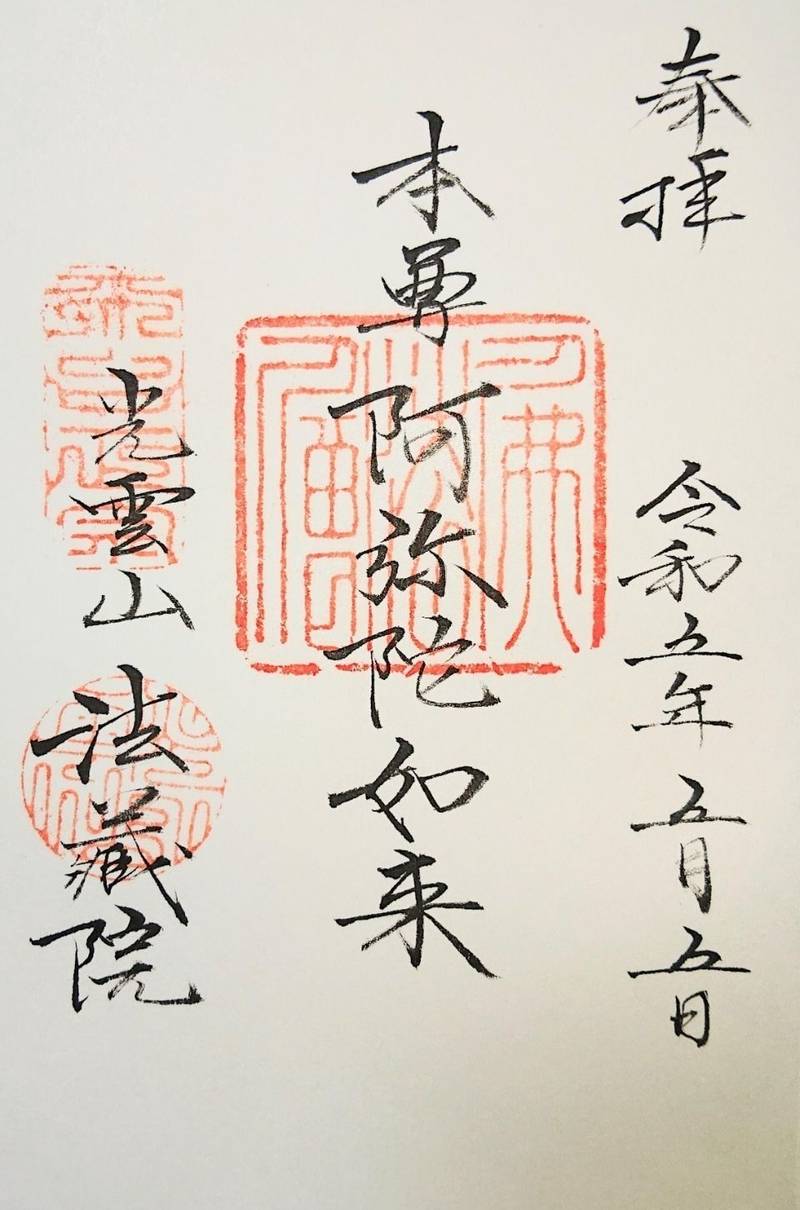 奉拝
令和五年 五月 五日
本尊 阿弥陀如来
光雲山 法蔵院